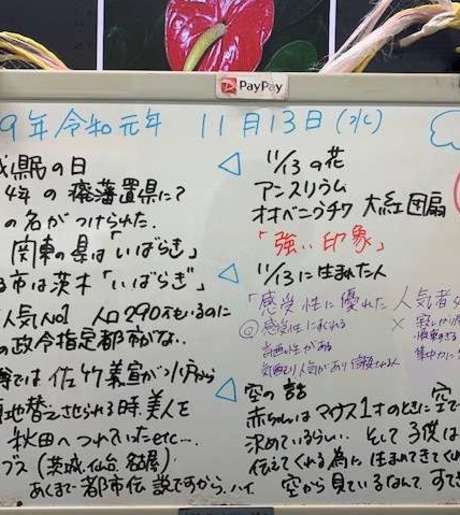 PayPay
9年 令和元年 11月13日(水)
県民の日
4年の廃藩置県にて
の名がつけられた.
関東の県は「いばらき」
市は茨木「いばらぎ」
人気No1 人口290万もいるのに
の政令指定都市がな..
では佐竹義宣が水戸から
替えさせられる時、美人を
秋田へつれていったetc...
ブス (茨城,仙台,名古屋)
あくまで都市伝説ですから、ハイ
◁ 11/13の花
アンスリウム
オオベニウチワ 大紅団扇
「強い印象」
◁ 11/13に生まれた人
「感受性に優れた人気者
◎感受性に
計画性がある
人気があり
×
集中力に
◁ 空の話
赤ちゃんはマウス1才のときに空で
決めているらしい. そして子供は
伝えてくれる為に生まれてきてく
空から見ているなんて、すてき